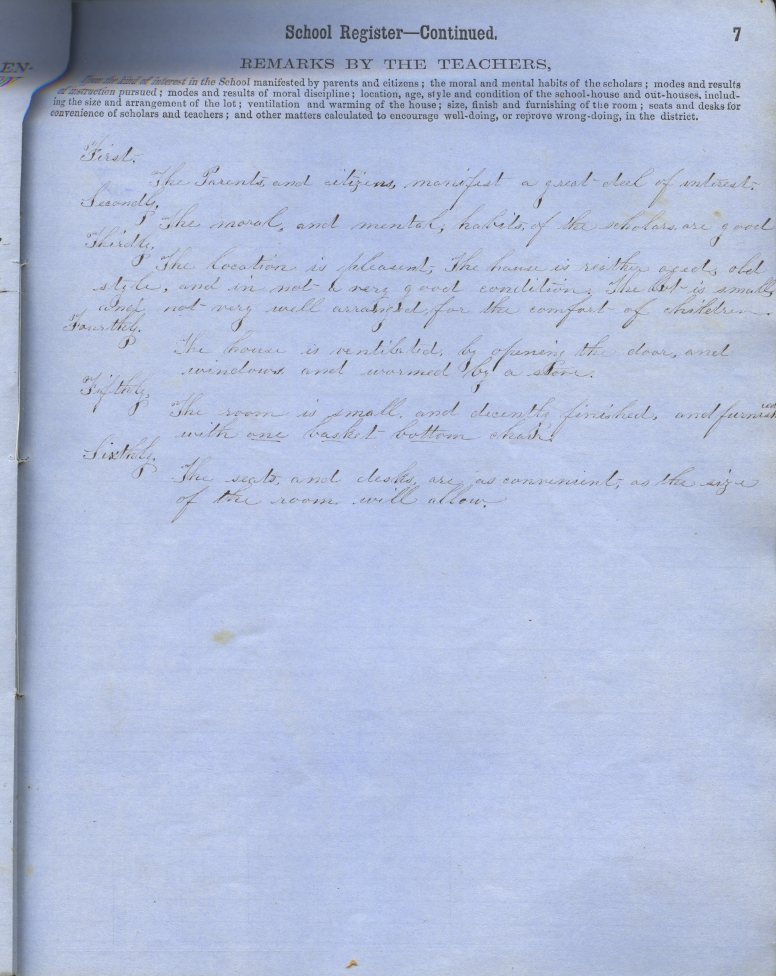 School Register—Continued.
7
EN-
REMARKS BY THE TEACHERS,
in the School manifested by parents and citizens; the moral and mental habits of the scholars; modes and results
of instruction pursued; modes and results of moral discipline; location, age, style and condition of the school-house and out-houses, includ-
ing the size and arrangement of the lot; ventilation and warming of the house; size, finish and furnishing of the room; seats and desks for
convenience of scholars and teachers; and other matters calculated to encourage well-doing, or reprove wrong-doing, in the district.
First.
The Parents, and citizens, manifest a great deel of interest.
Secondly,
The moral, and mental, habits, of the scholars, are good
Thirdly,
The location is pleasent, The house is reither aged, old
style, and in not a very good condition. The lot is small,
and, not very well arranged, for the comfort of children.
Fourthly.
The house is ventilated, by opening the door, and
windows and warmed by a stove.
Fifthly,
The room is small, and decently finished, and furnished
with one basket bottom chair.
Sixthly,
The seats, and desks, are as convenient, as the size
of the room will allow.